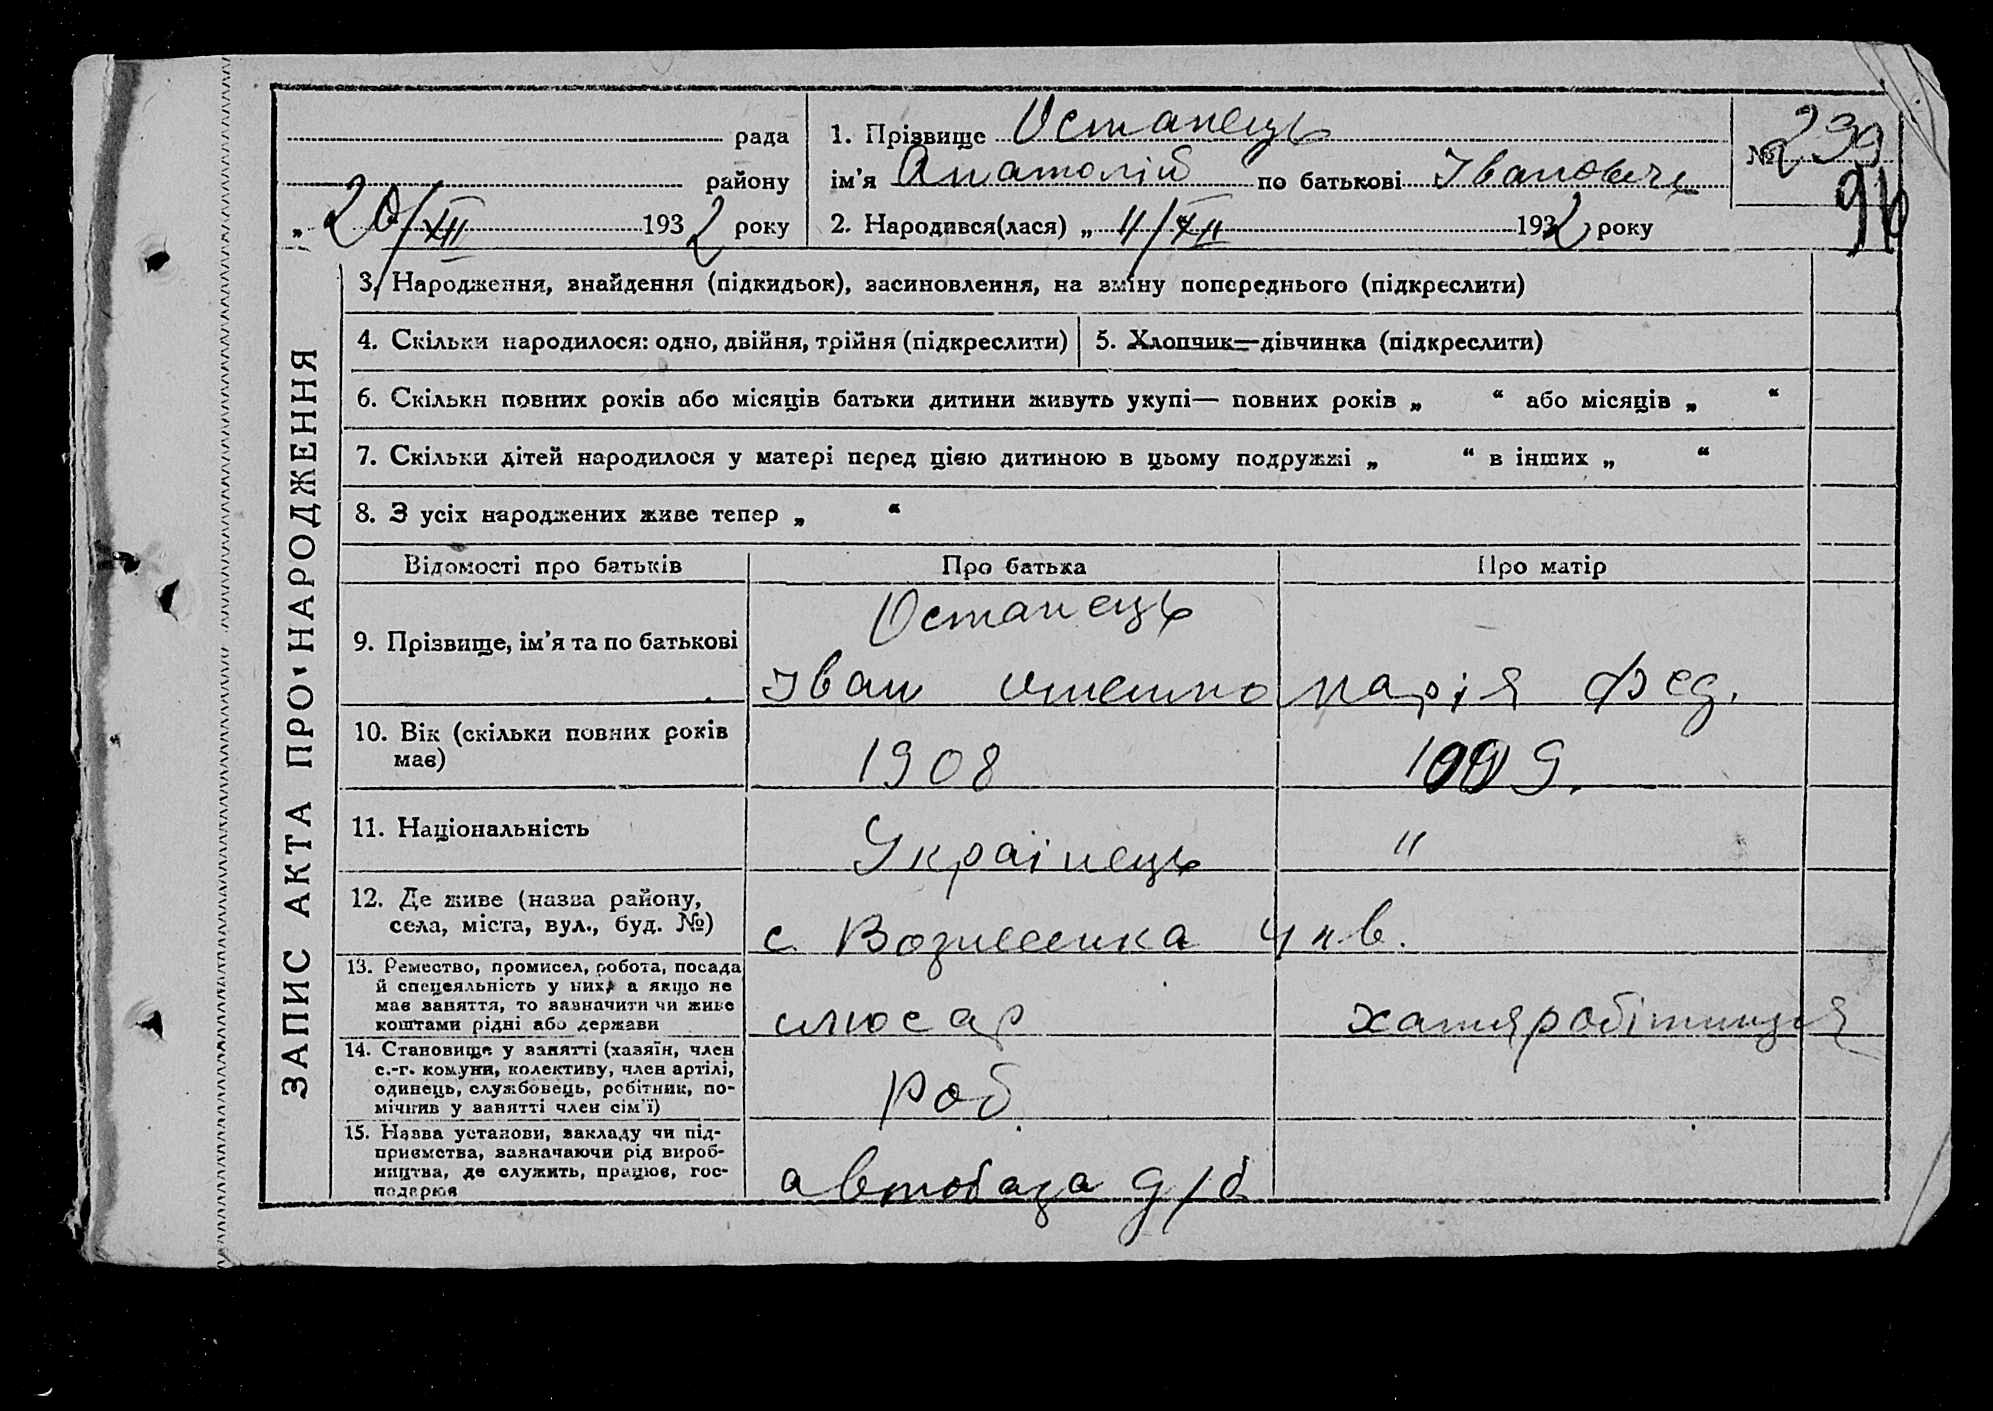 рада
району
„ 20/XII 1932 року
1. Прізвище Останець
ім'я Анатолій по батькові Іванович
2. Народився(лася) „ 11/XII 1932 року
№ 239
96
ЗАПИС АКТА ПРО НАРОДЖЕННЯ
3. Народження, знайдення (підкидьок), засиновлення, на зміну попереднього (підкреслити)
4. Скільки народилося: одно, двійня, трійня (підкреслити)
5. Хлопчик—дівчинка (підкреслити)
6. Скільки повних років або місяців батьки дитини живуть укупі— повних років „ “ або місяців „ “
7. Скільки дітей народилося у матері перед цією дитиною в цьому подружжі „ “ в інших „ “
8. З усіх народжених живе тепер „ “
Відомості про батьків
Про батька
Про матір
9. Прізвище, ім'я та по батькові
Останець
Іван
Марія Фед.
10. Вік (скільки повних років
має)
1908
1909.
11. Національність
Українець
"
12. Де живе (назва району,
села, міста, вул., буд. №)
с Вознесенка
13. Ремество, промисел, робота, посада
й спецеяльність у них, а якщо не
має заняття, то зазначити чи живе
коштами рідні або держави
слюсар
хатняробітниця
14. Становище у занятті (хазяїн, член
с.-г. комуни, колективу, член артілі,
одинець, службовець, робітник, по-
мічник у занятті член сім'ї)
роб.
15. Назва установи, закладу чи під-
приємства, зазначаючи рід вироб-
ництва, де служить, працює, гос-
подарює
автобаза д/б